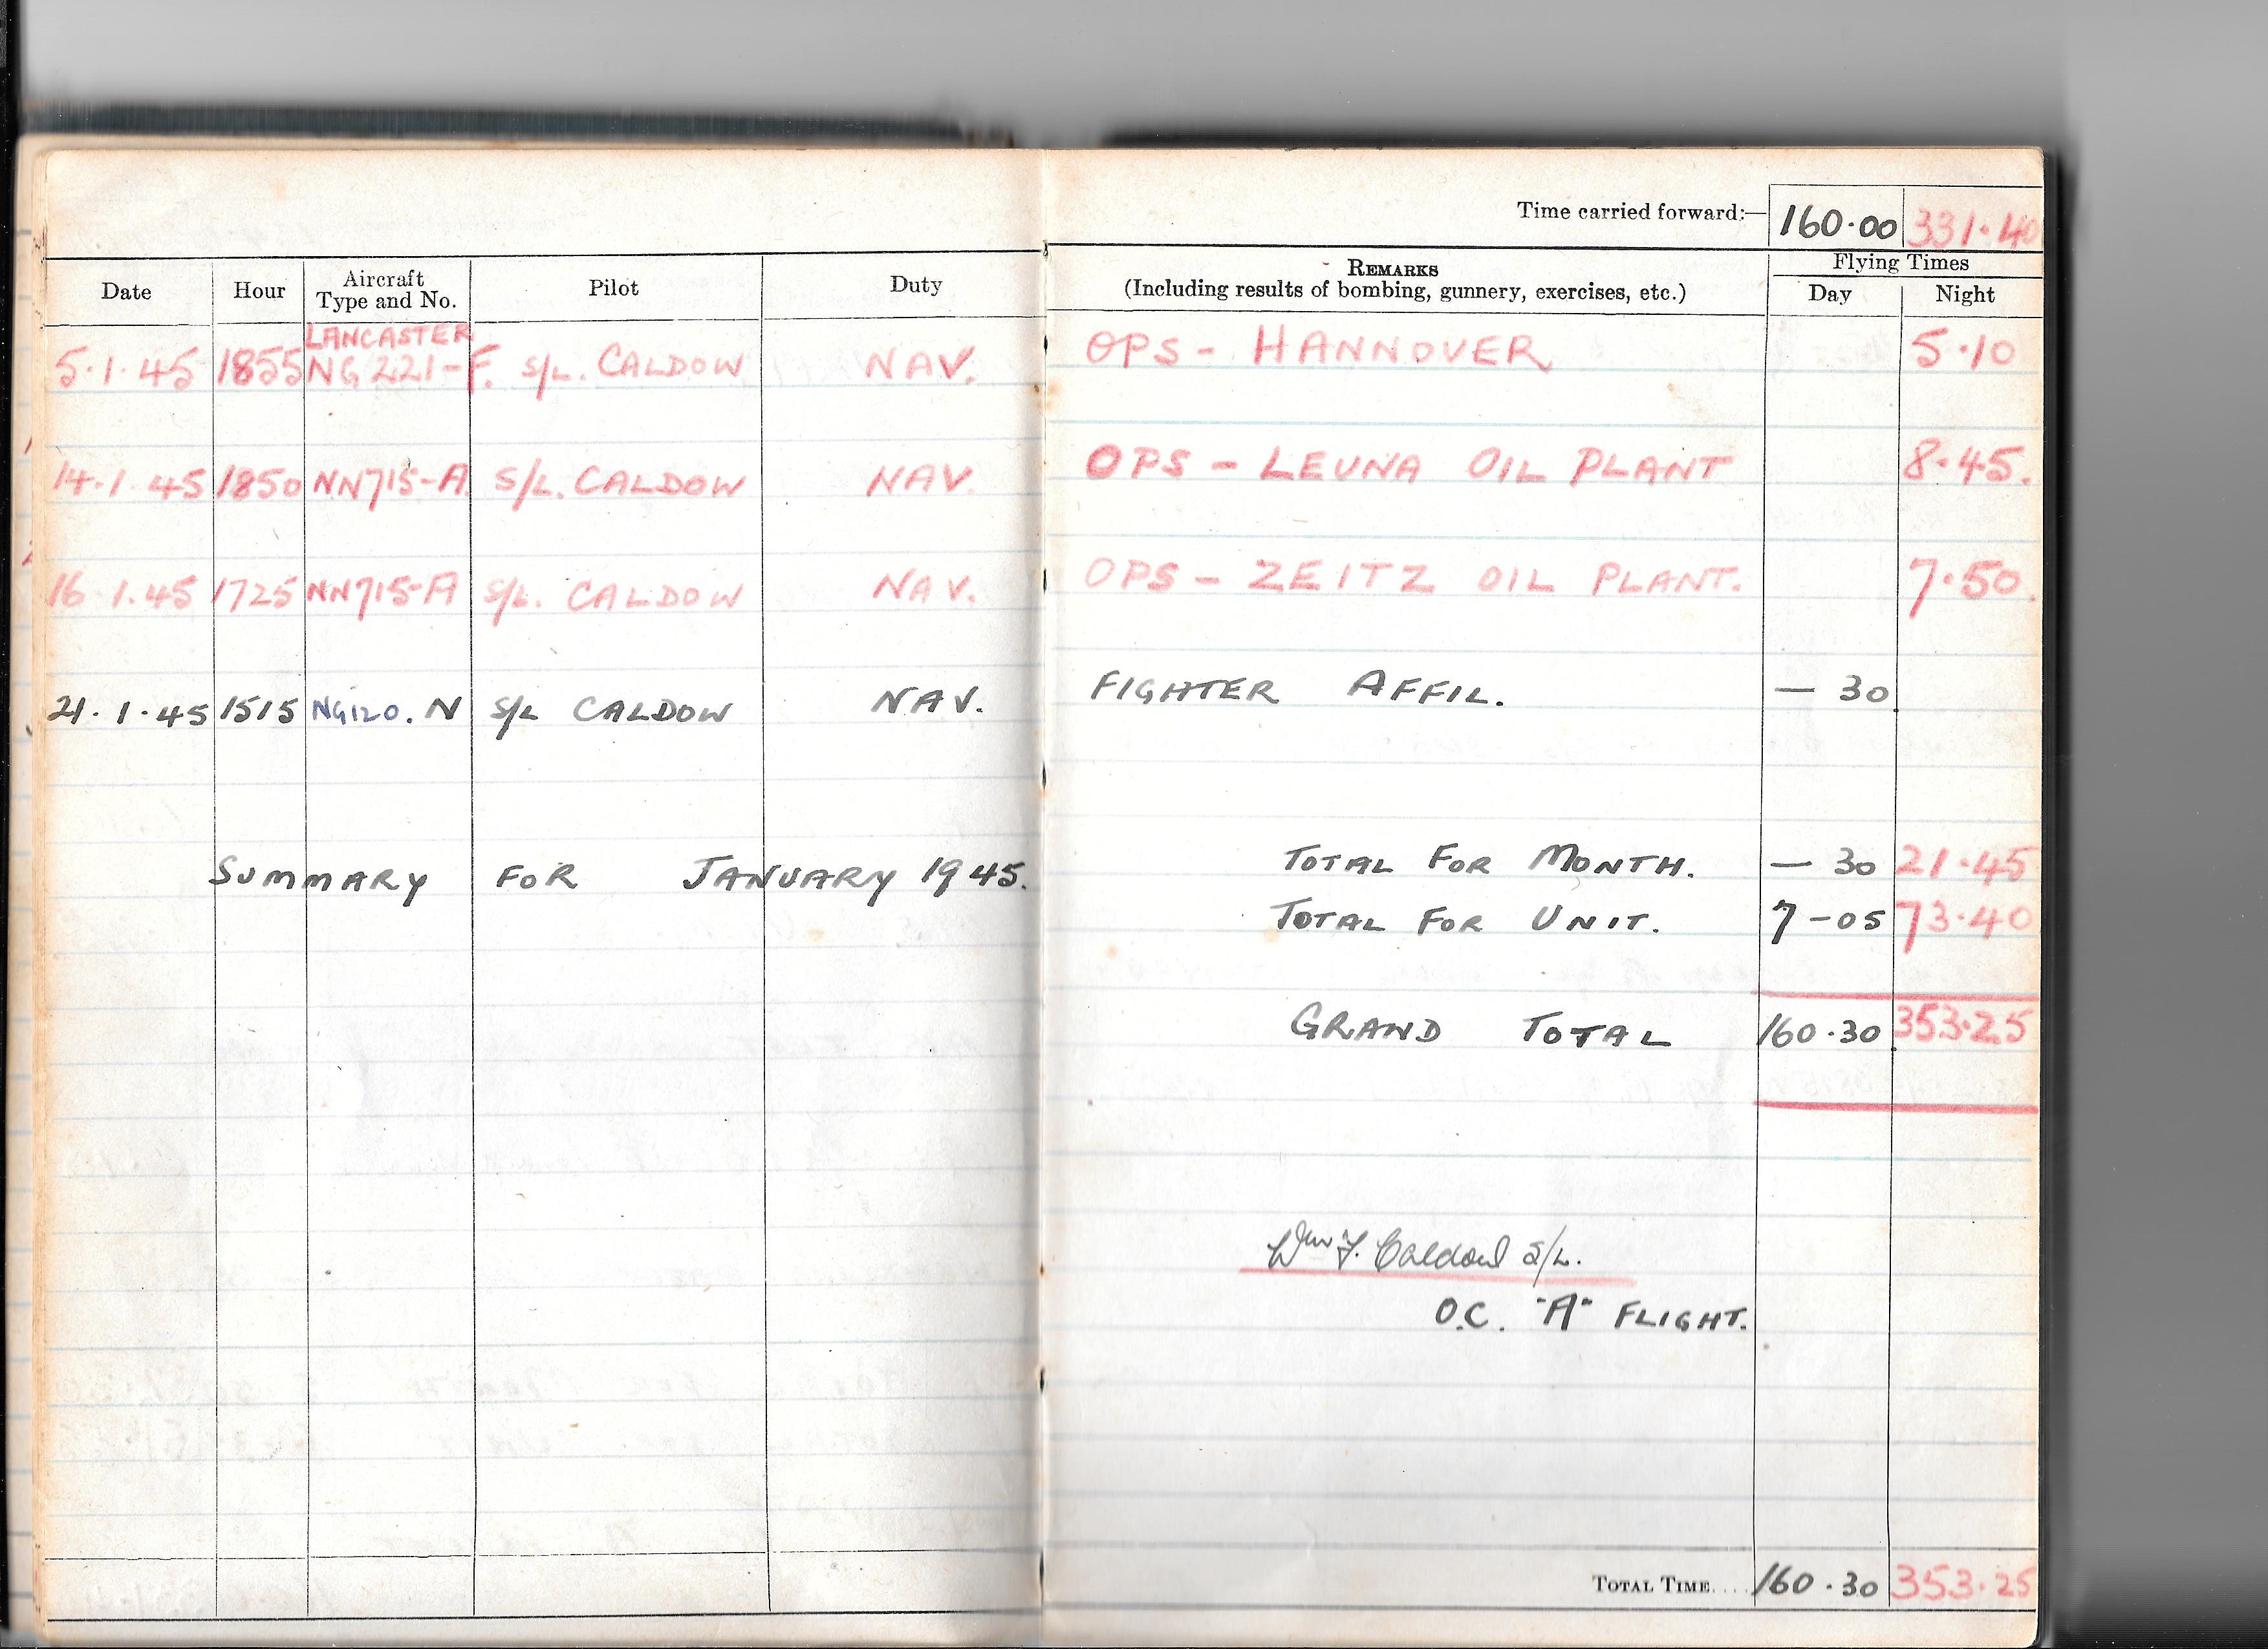 Time carried forward:— 160.00 331.40
Date Hour Aircraft Type and No. Pilot Duty REMARKS (Including results of bombing, gunnery, exercises, etc.) Flying Times Day Night
LANCASTER
5.1.45 1855 NG221-F. S/L. CALDOW NAV. OPS - HANNOVER 5.10
14.1.45 1850 NN715-A. S/L. CALDOW NAV. OPS - LEUNA OIL PLANT 8.45.
16.1.45 1725 NN715-A S/L. CALDOW NAV. OPS - ZEITZ OIL PLANT. 7.50.
21.1.45 1515 NG120. N S/L CALDOW NAV. FIGHTER AFFIL. — 30
SUMMARY FOR JANUARY 1945. TOTAL FOR MONTH. — 30 21.45
TOTAL FOR UNIT. 7-05 73.40
GRAND TOTAL 160.30 353.25
Wm J. Caldow S/L.
O.C. "A" FLIGHT.
TOTAL TIME.... 160.30 353.25